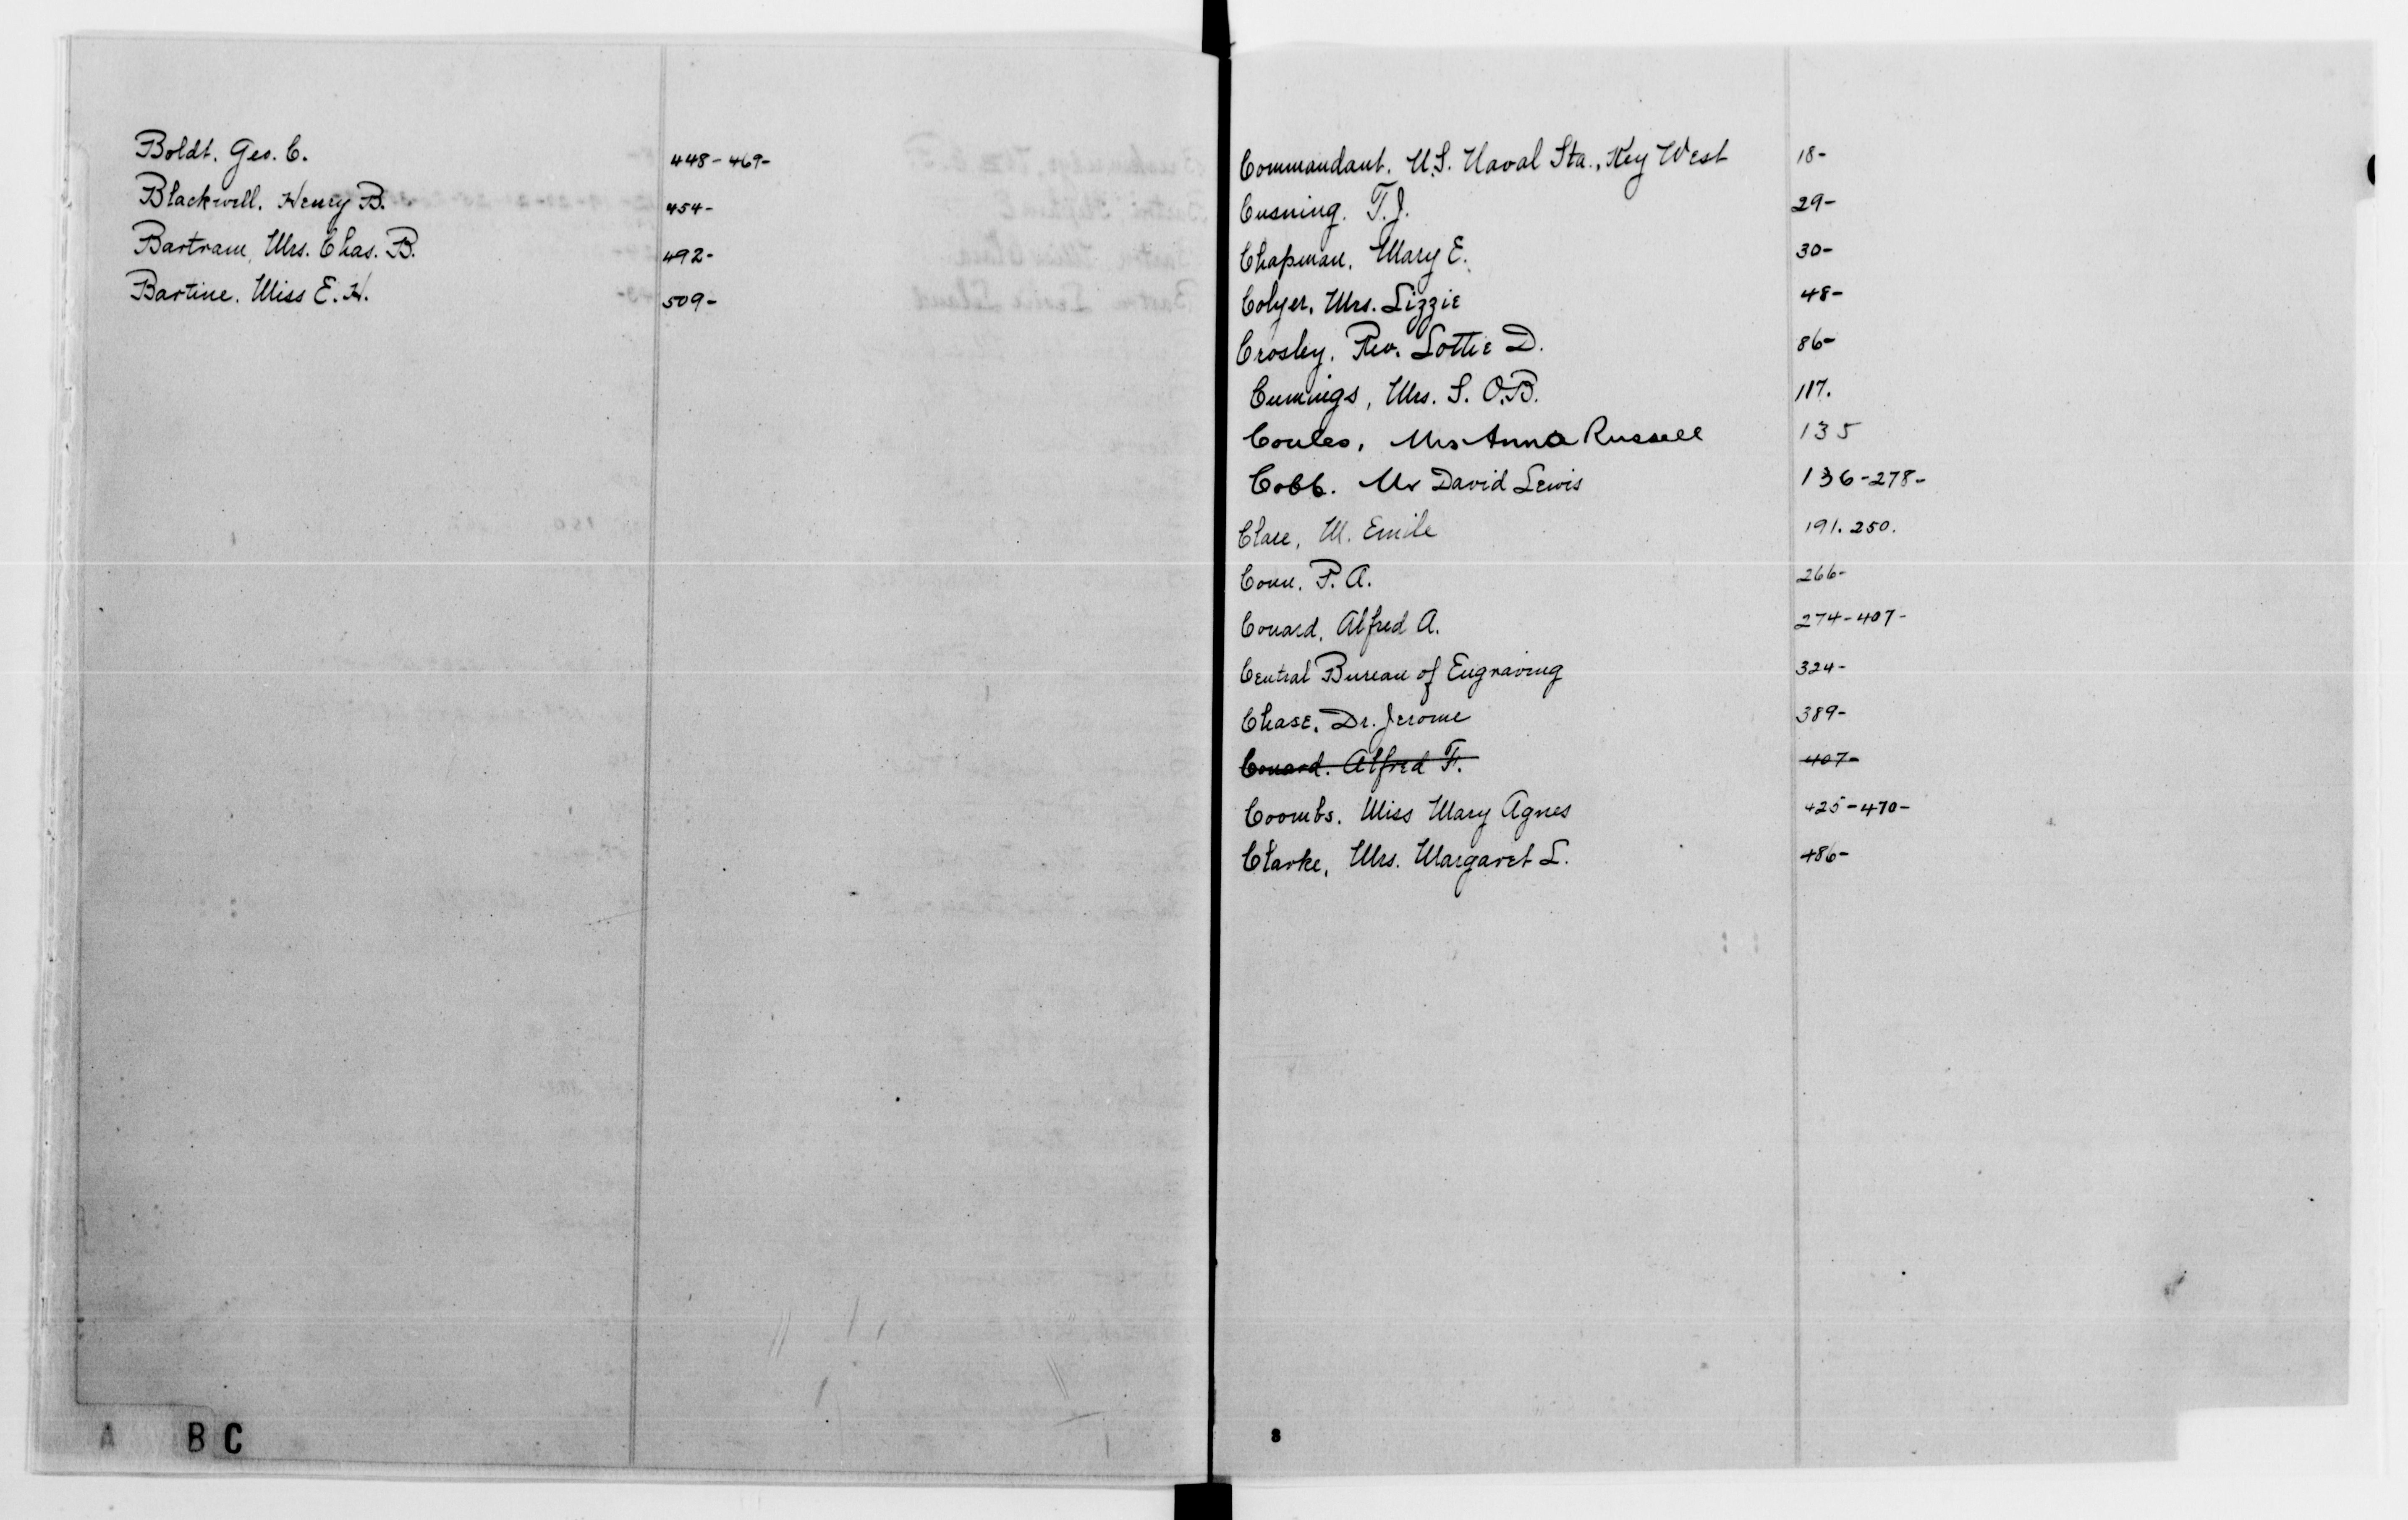 Boldt. Geo. C. 448-469-
Blackwell. Henry B. 454-
Bartram, Mrs. Chas. B. 492-
Bartine. Miss E. H. 509-
A B C
Commandant. U.S. Naval Sta., Key West 18-
Cusning. T. J. 29-
Chapman. Mary E. 30-
Colyer. Mrs. Lizzie 48-
Crosley. Rev. Lottie D. 86-
Cummings, Mrs. S. O.B. 117.
Coules, Mrs Anna Russell 135
Cobb. Mr David Lewis 136-278-
M. Emile 191. 250.
Conn. P. A. 266-
Conard. Alfred A. 274-407-
Central Bureau of Engraving 324-
Chase. Dr. Jerome 389-
Conard. Alfred F. 407-
Coombs. Miss Mary Agnes 425-470-
Clarke, Mrs. Margaret L. 486-